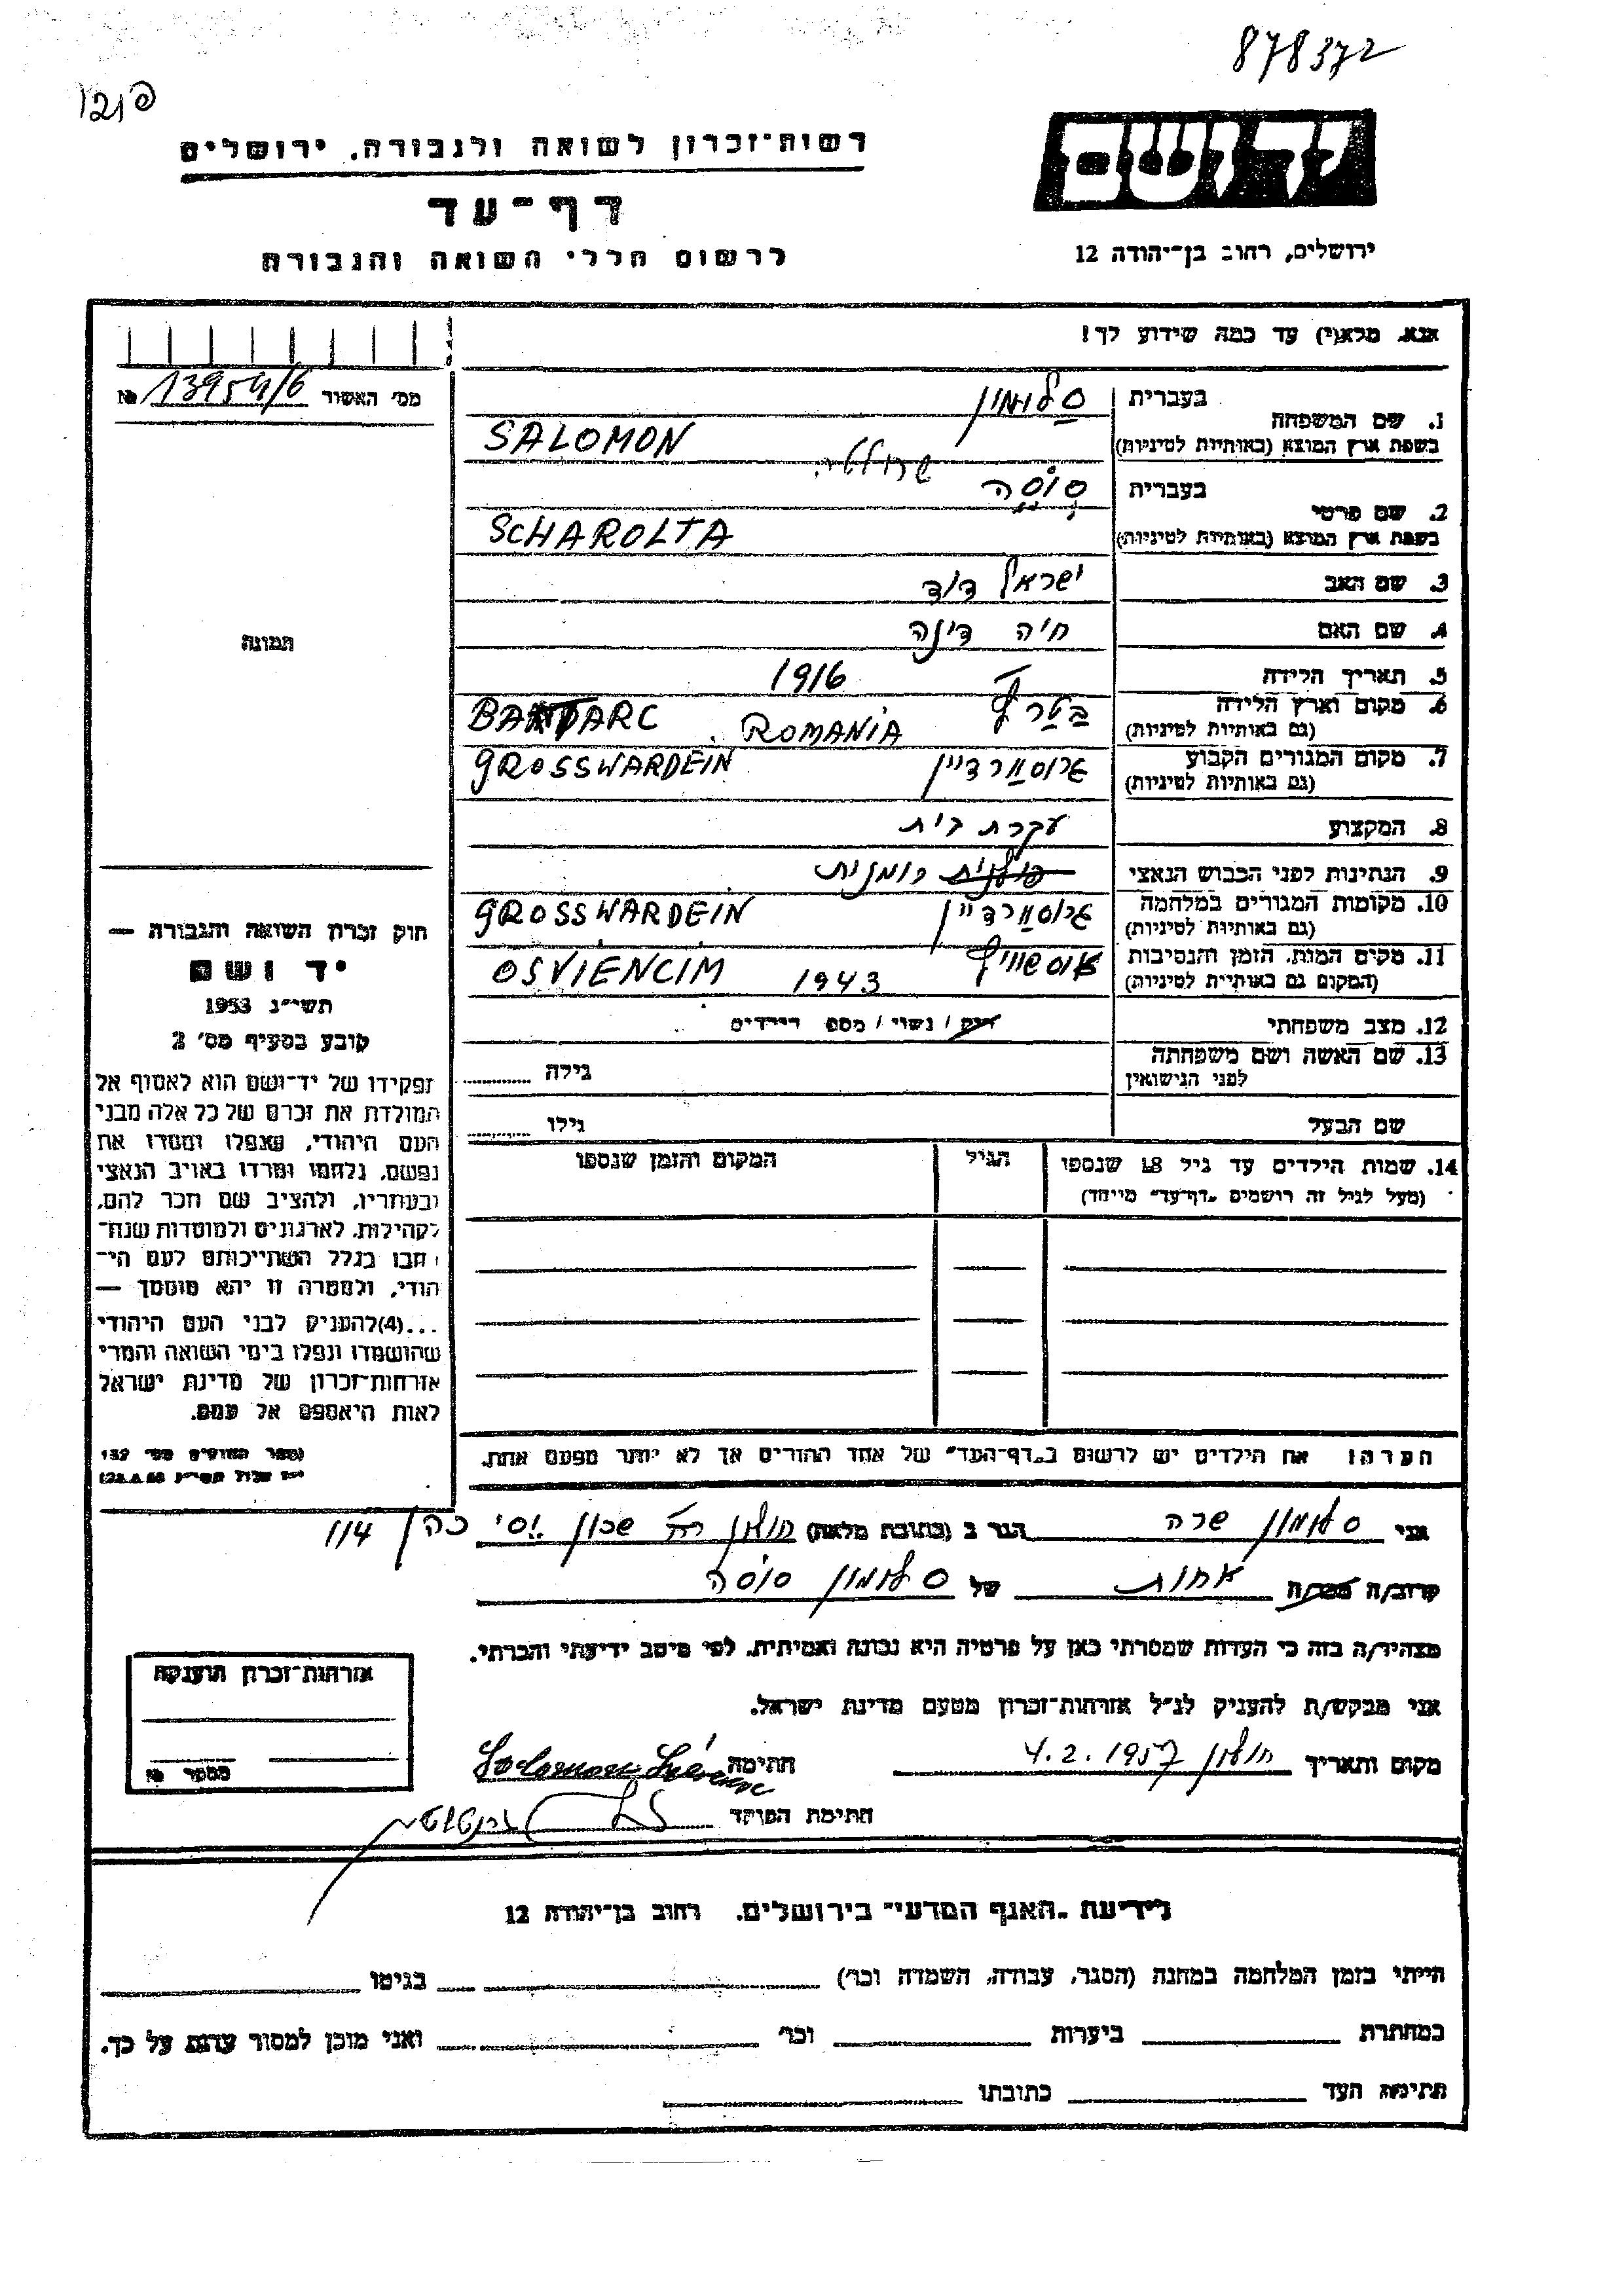 878372
רשות־זכרון לשואה ולגבורה, ירושלים
יד ושם
דף־עד
לרשום חללי השואה והגבורה
ירושלים, רחוב בן־יהודה 12
אנא, מלא(י) עד כמה שידוע לך!
מס׳ האשור № 13954/6
תמונה
1. שם המשפחה בעברית סלומון
בשפת ארץ המוצא (באותיות לטיניות) SALOMON
שרולטה
2. שם פרטי בעברית סוסה
בשפת ארץ המוצא (באותיות לטיניות) SCHAROLTA
3. שם האב ישראל דוד
4. שם האם חיה דינה
5. תאריך הלידה 1916
6. מקום וארץ הלידה (גם באותיות לטיניות) ROMANIA
7. מקום המגורים הקבוע (גם באותיות לטיניות) גרוסוורדיין GROSSWARDEIN
8. המקצוע עקרת בית
9. הנתינות לפני הכבוש הנאצי רומנית
10. מקומות המגורים במלחמה (גם באותיות לטיניות) גרוסוורדיין GROSSWARDEIN
11. מקום המות, הזמן והנסיבות (המקום גם באותיות לטיניות) אוסשוויץ OSVIENCIM 1943
12. מצב משפחתי רווק / נשוי / מספר הילדים
13. שם האשה ושם משפחתה לפני הנישואין גילה
שם הבעל גילו
14. שמות הילדים עד גיל 18 שנספו הגיל המקום והזמן שנספו
(מעל לגיל זה רושמים „דף־עד” מיוחד)
הערה: את הילדים יש לרשום ב„דף־העד” של אחד ההורים אך לא יותר מפעם אחת.
חוק זכרון השואה והגבורה —
יד ושם
תשי״ג 1953
קובע בסעיף מס׳ 2
תפקידו של יד־ושם הוא לאסוף אל
המולדת את זכרם של כל אלה מבני
העם היהודי, שנפלו ומסרו את
נפשם, נלחמו ומרדו באויב הנאצי
ובעוזריו, ולהציב שם וזכר להם,
לקהילות, לארגונים ולמוסדות שנח־
רבו בגלל השתייכותם לעם הי־
הודי, ולמטרה זו יהא מוסמך —
...(4)להעניק לבני העם היהודי
שהושמדו ונפלו בימי השואה והמרי
אזרחות־זכרון של מדינת ישראל
לאות היאספם אל עמם.
אני סלומון שרה הגר ב (כתובת מלאה) חולון שכון יוסי כהן 114
קרוב/ה מכר/ה אחות של סלומון סוסה
מצהיר/ה בזה כי העדות שמסרתי כאן על פרטיה היא נכונה ואמיתית, לפי מיטב ידיעתי והכרתי.
אני מבקש/ת להעניק לנ״ל אזרחות־זכרון מטעם מדינת ישראל.
מקום ותאריך חולון 4.2.1957 חתימה
חתימת הפוקד
אזרחות־זכרון הוענקה
מספר №
לידיעת „האגף המדעי” בירושלים, רחוב בן־יהודה 12
הייתי בזמן המלחמה במחנה (הסגר, עבודה, השמדה וכו׳) בגיטו
במחתרת ביערות וכו׳ ואני מוכן למסור עדות על כך.
חתימת העד כתובתו